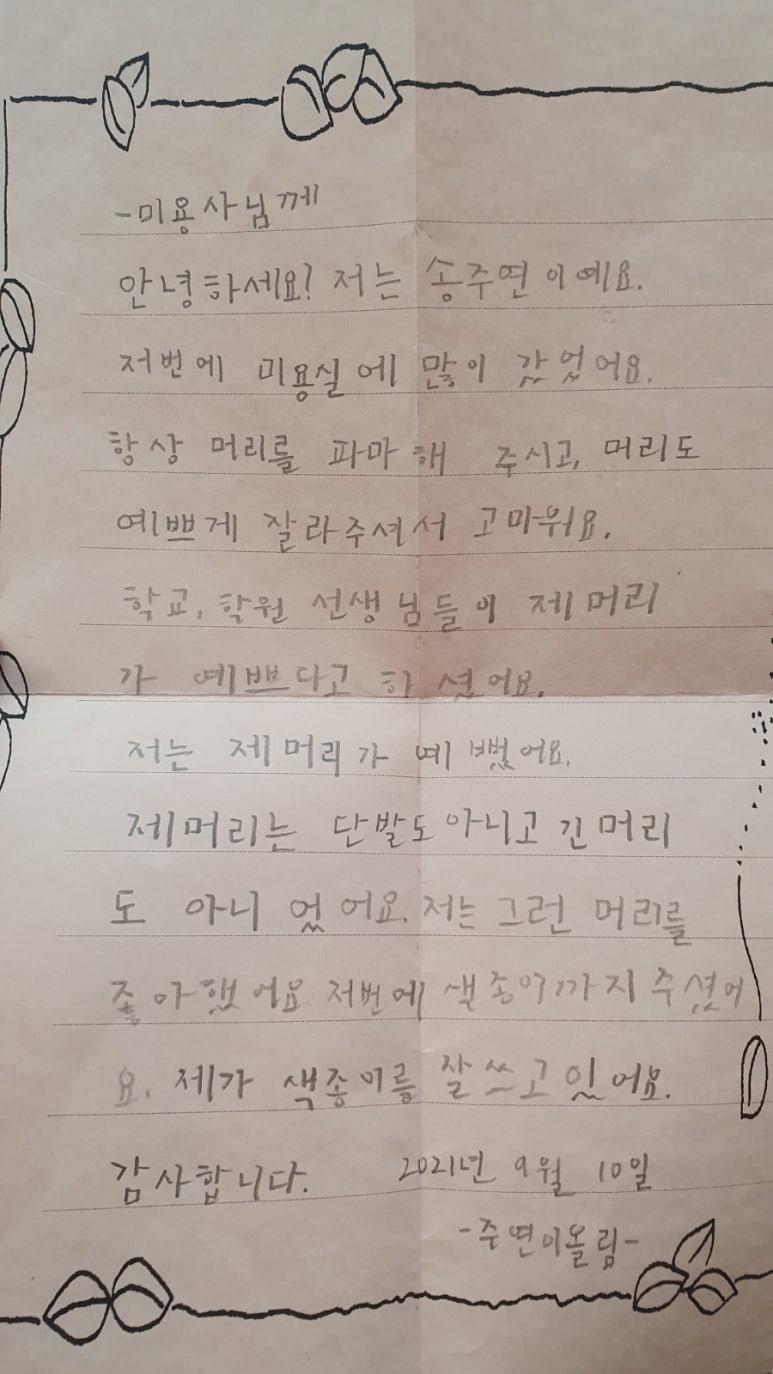 -미용사님께
안녕하세요! 저는 송주연이예요.
저번에 미용실에 많이 갔었어요.
항상 머리를 파마해 주시고, 머리도
예쁘게 잘라주셔서 고마워요.
학교, 학원 선생님들이 제머리
가 예쁘다고 하셨어요.
저는 제머리가 예뻤어요.
제머리는 단발도아니고 긴머리
도 아니었어요. 저는 그런 머리를
좋아했어요 저번에 색종이까지 주셨어
요. 제가 색종이를 잘 쓰고있어요.
감사합니다. 2021년 9월 10일
-주연이올림-